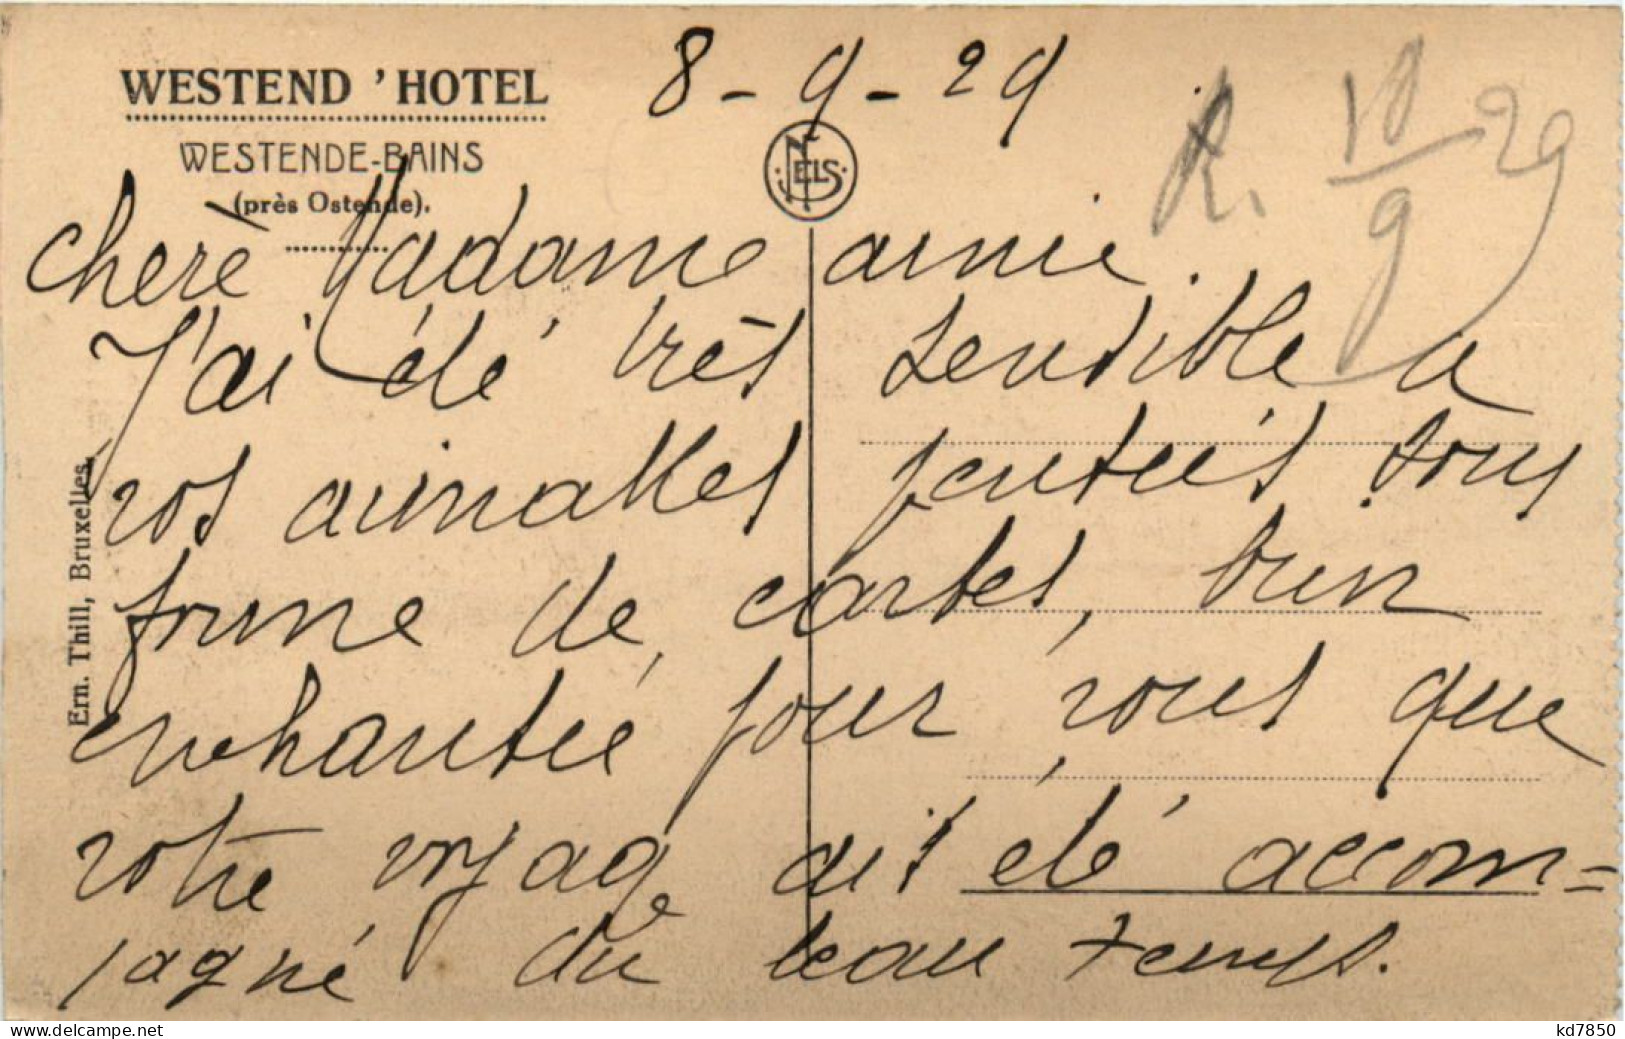 WESTEND 'HOTEL
WESTENDE-BAINS
(près Ostende).
8-9-29
NELS
R. 10/9 29
chère Madame amie.
J'ai été très sensible à
vos aimables pensées sous
forme de cartes, bien
enchantée pour vous que
votre voyage ait été accom=
pagné du beau temps.
Ern. Thill, Bruxelles.
delcampe.net
kd7850